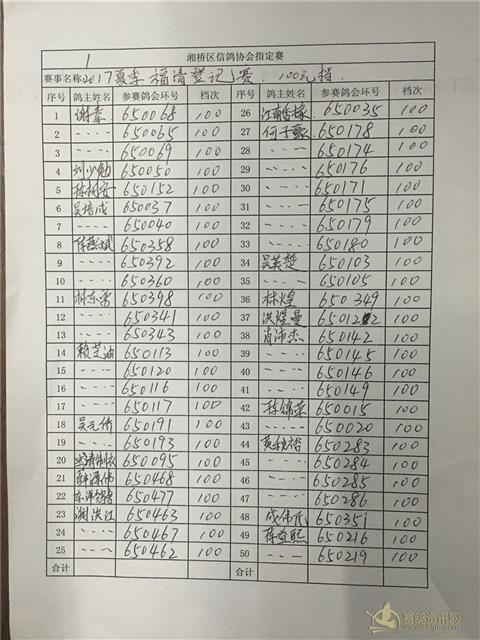 1 湘桥区信鸽协会指定赛
赛事名称 2017夏季 福清登记赛. 100元档.
序号 鸽主姓名 参赛鸽会环号 档次 序号 鸽主姓名 参赛鸽会环号 档次
1 谢素 650068 100 26 江南香榇 650035 100
2 ---- 650065 100 27 何子豪 650178 100
3 ---- 650069 100 28 ---- 650174 100
4 刘少勉 650050 100 29 ---- 650176 100
5 陈树安 650152 100 30 ---- 650171 100
6 吴培成 650037 100 31 ---- 650175 100
7 ---- 650040 100 32 ---- 650179 100
8 陈燕斌 650358 100 33 ---- 650180 100
9 ---- 650392 100 34 吴英楚 650103 100
10 ---- 650360 100 35 ---- 650105 100
11 林东 650398 100 36 林煌 650349 100
12 ---- 650341 100 37 洪煜曼 650122 100
13 ---- 650343 100 38 肖沛杰 650142 100
14 赖芝油 650113 100 39 ---- 650145 100
15 ---- 650120 100 40 ---- 650146 100
16 ---- 650116 100 41 ---- 650149 100
17 ---- 650117 100 42 陈锦荣 650015 100
18 吴元侨 650191 100 43 ---- 650020 100
19 ---- 650193 100 44 黄秋裕 650283 100
20 650095 100 45 ---- 650284 100
21 薛泽伟 650468 100 46 ---- 650285 100
22 650477 100 47 ---- 650286 100
23 谢洪江 650463 100 48 成伟民 650351 100
24 ---- 650467 100 49 陈益熙 650216 100
25 ---- 650462 100 50 ---- 650219 100
合计 合计
赛鸽资讯网